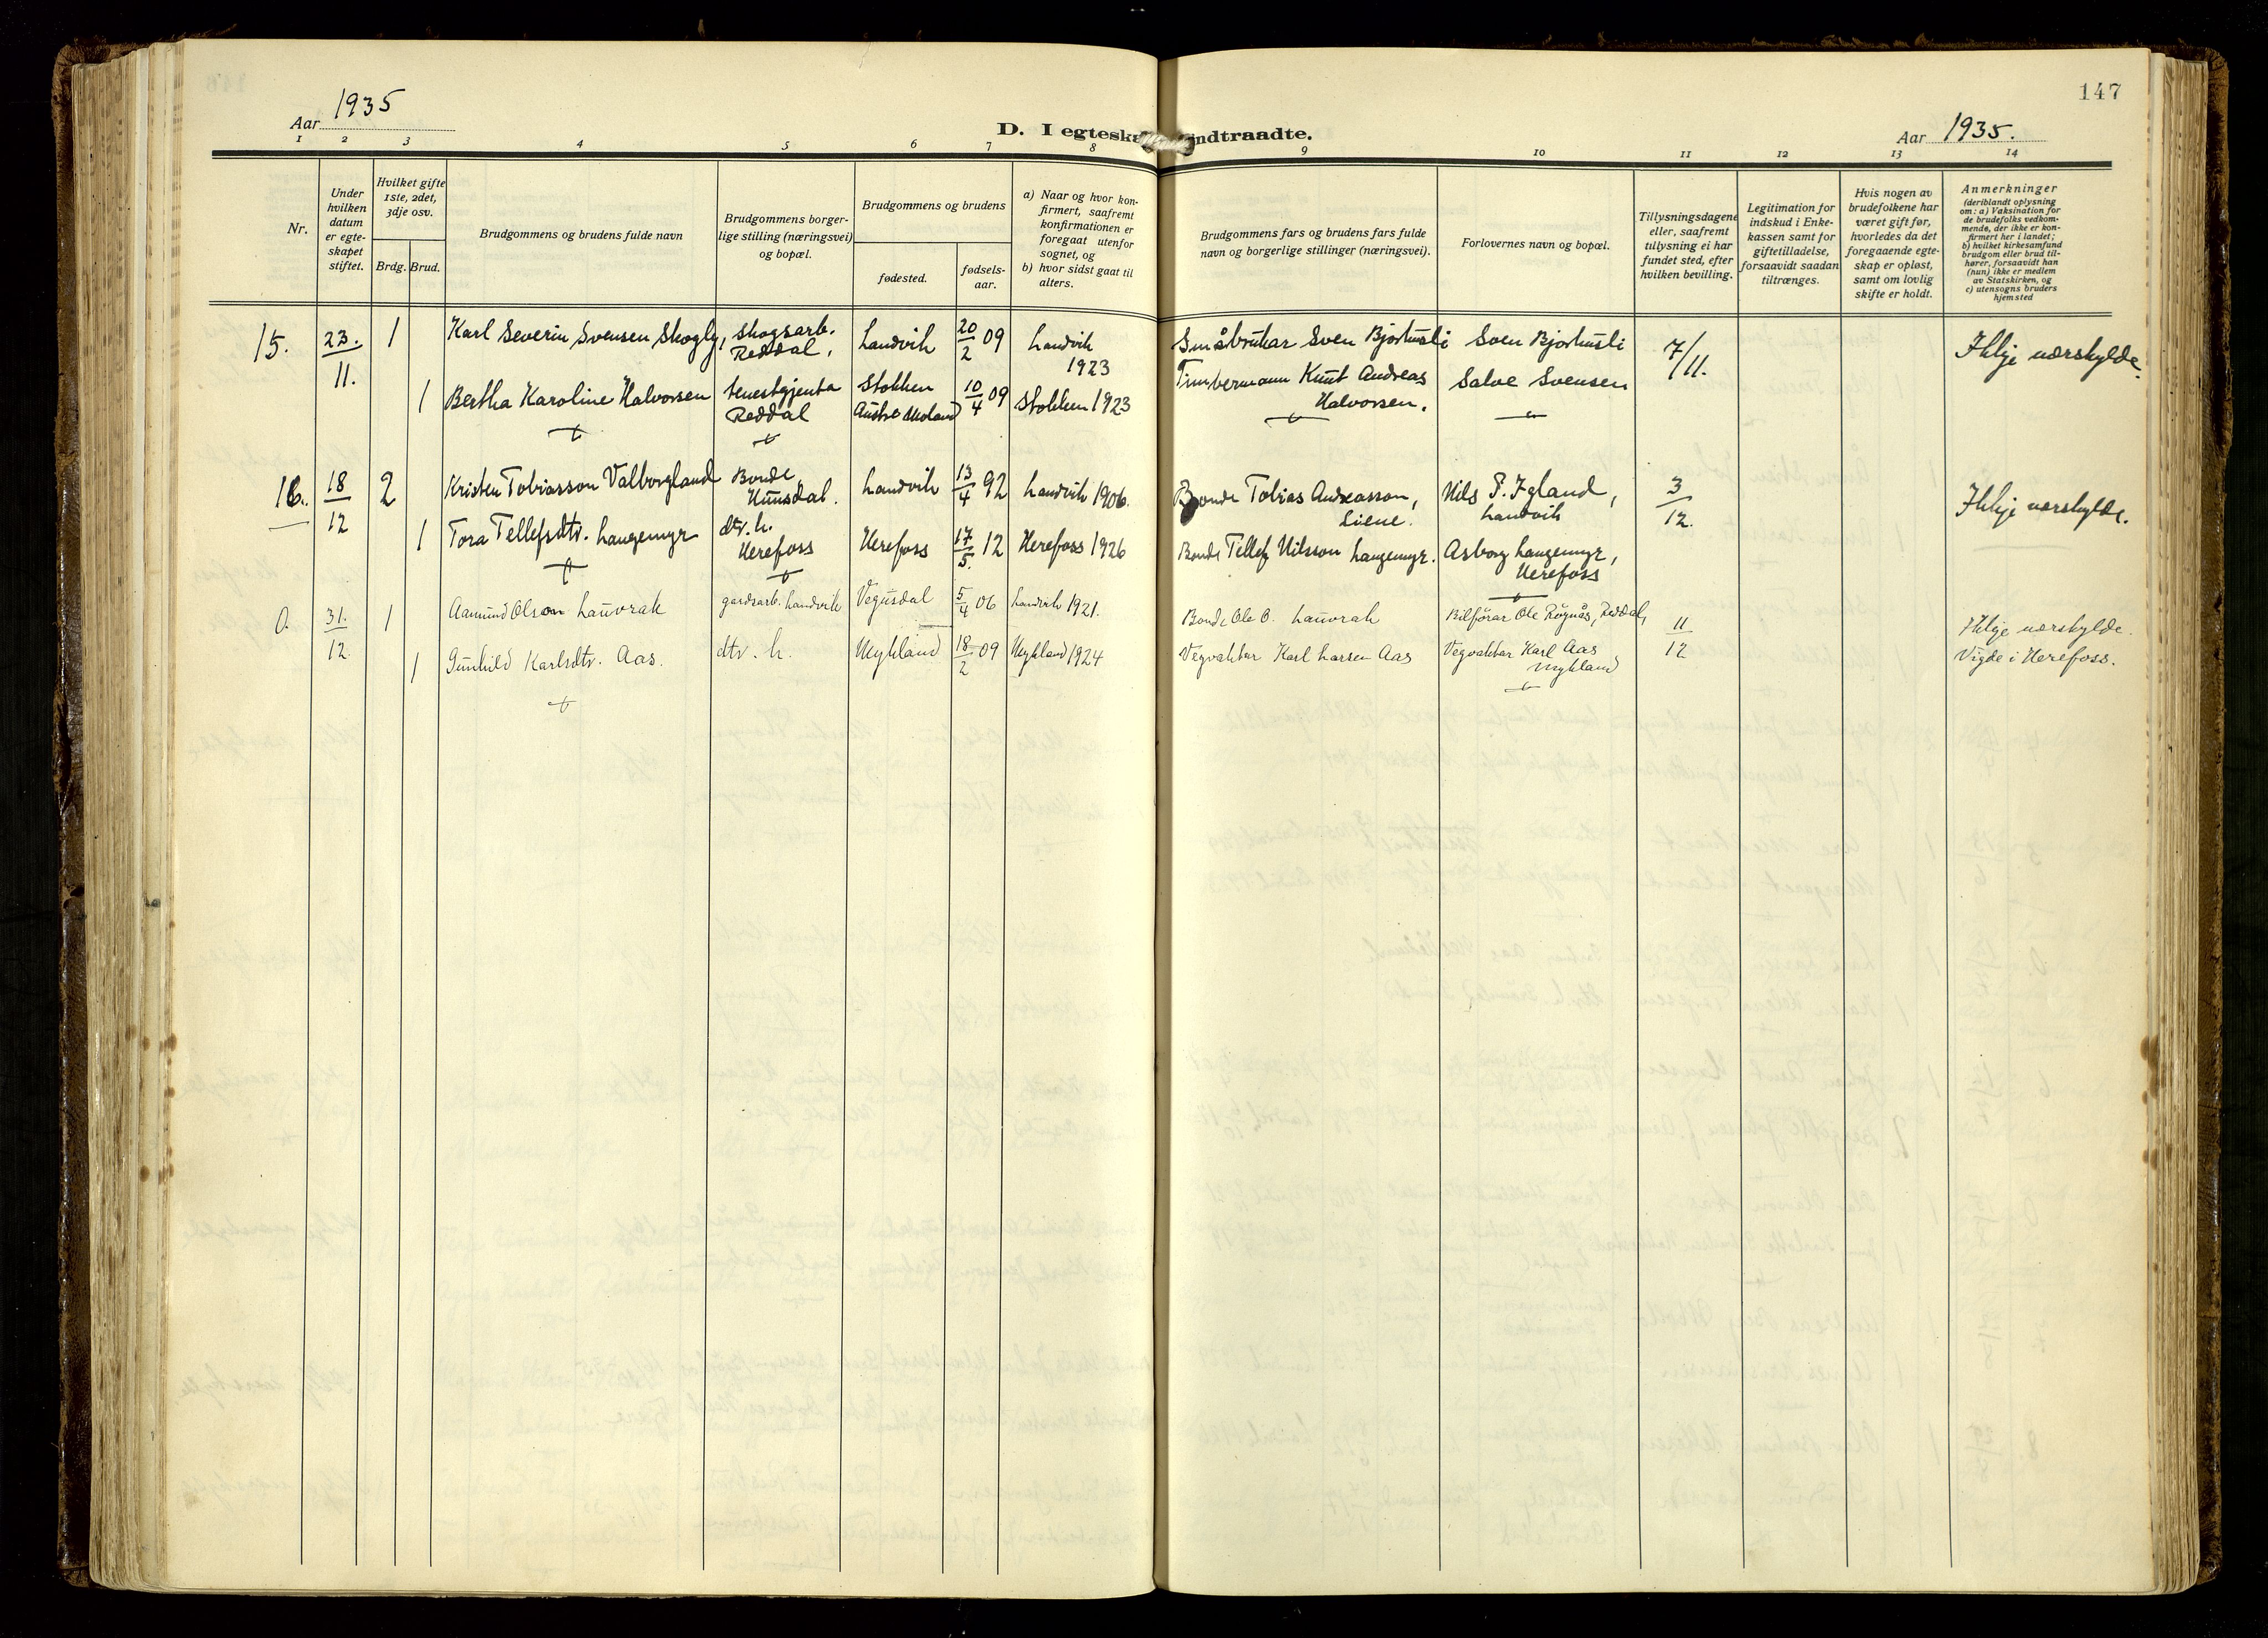 147
Aar 1935
D. I egteska ndtraadte.
Aar 1935.
1 2 3 4 5 6 7 8 9 10 11 12 13 14
Nr.
Under
hvilken
datum
er egte-
skapet
stiftet.
Hvilket gifte
1ste, 2det,
3dje osv.
Brdg. Brud.
Brudgommens og brudens fulde navn
Brudgommens borger-
lige stilling (næringsvei)
og bopæl.
Brudgommens og brudens
fødested.
fødsels-
aar.
a) Naar og hvor kon-
firmert, saafremt
konfirmationen er
foregaat utenfor
sognet, og
b) hvor sidst gaat til
alters.
Brudgommens fars og brudens fars fulde
navn og borgerlige stillinger (næringsvei).
Forlovernes navn og bopæl.
Tillysningsdagene
eller, saafremt
tillysning ei har
fundet sted, efter
hvilken bevilling.
Legitimation for
indskud i Enke-
kassen samt for
giftetilladelse,
forsaavidt saadan
tiltrænges.
Hvis nogen av
brudefolkene har
været gift før,
hvorledes da det
foregaaende egte-
skap er opløst,
samt om lovlig
skifte er holdt.
Anmerkninger
(deriblandt oplysning
om: a) Vaksination for
de brudefolks vedkom-
mende, der ikke er kon-
firmert her i landet;
b) hvilket kirkesamfund
brudgom eller brud til-
hører, forsaavidt han
(hun) ikke er medlem
av Statskirken, og
c) utensogns bruders
hjemsted
15. 23./11. 1 Karl Severin Svensen Skogly, skogsarb. Reddal, Landvik 20/2 09 Landvik 1923 Småbrukar Sven Bjorkusli Sven Bjorkusli 7/11. Ikkje uærskylde.
1 Bertha Karoline Halvorsen tenestgjenta Reddal Stokken Austre Moland 10/4 09 Stokken 1923 Timbermann Knut Andreas Halvorsen. Salve Svensen
16. 18/12 2 Kristen Tobiasson Valborgland Bonde Landvik 13/4 92 Landvik 1906. Bonde Tobias Andreasson, Nils P. Igland, Landvik 3/12. Ikkje uærskylde.
1 Tora Tellefsdtr. Langemyr dtr. h. Herefoss Herefoss 17/5. 12 Herefoss 1926 Bonde Tellef Nilsson Langemyr. Asborg Langemyr, Herefoss
0. 31./12. 1 Aamund Olson Lauvrak gardsarb. Landvik Vegusdal 5/4 06 Landvik 1921. Bonde Ole O. Lauvrak Bilførar Ole Rognås, Reddal, 11/12 Ikkje uærskylde.
1 Gunhild Karlsdtr. Aas. dtr. h. Mykland 18/2 09 Mykland 1924 Vegvaktar Karl Larsen Aas Vegvaktar Karl Aas Mykland Vigde i Herefoss.